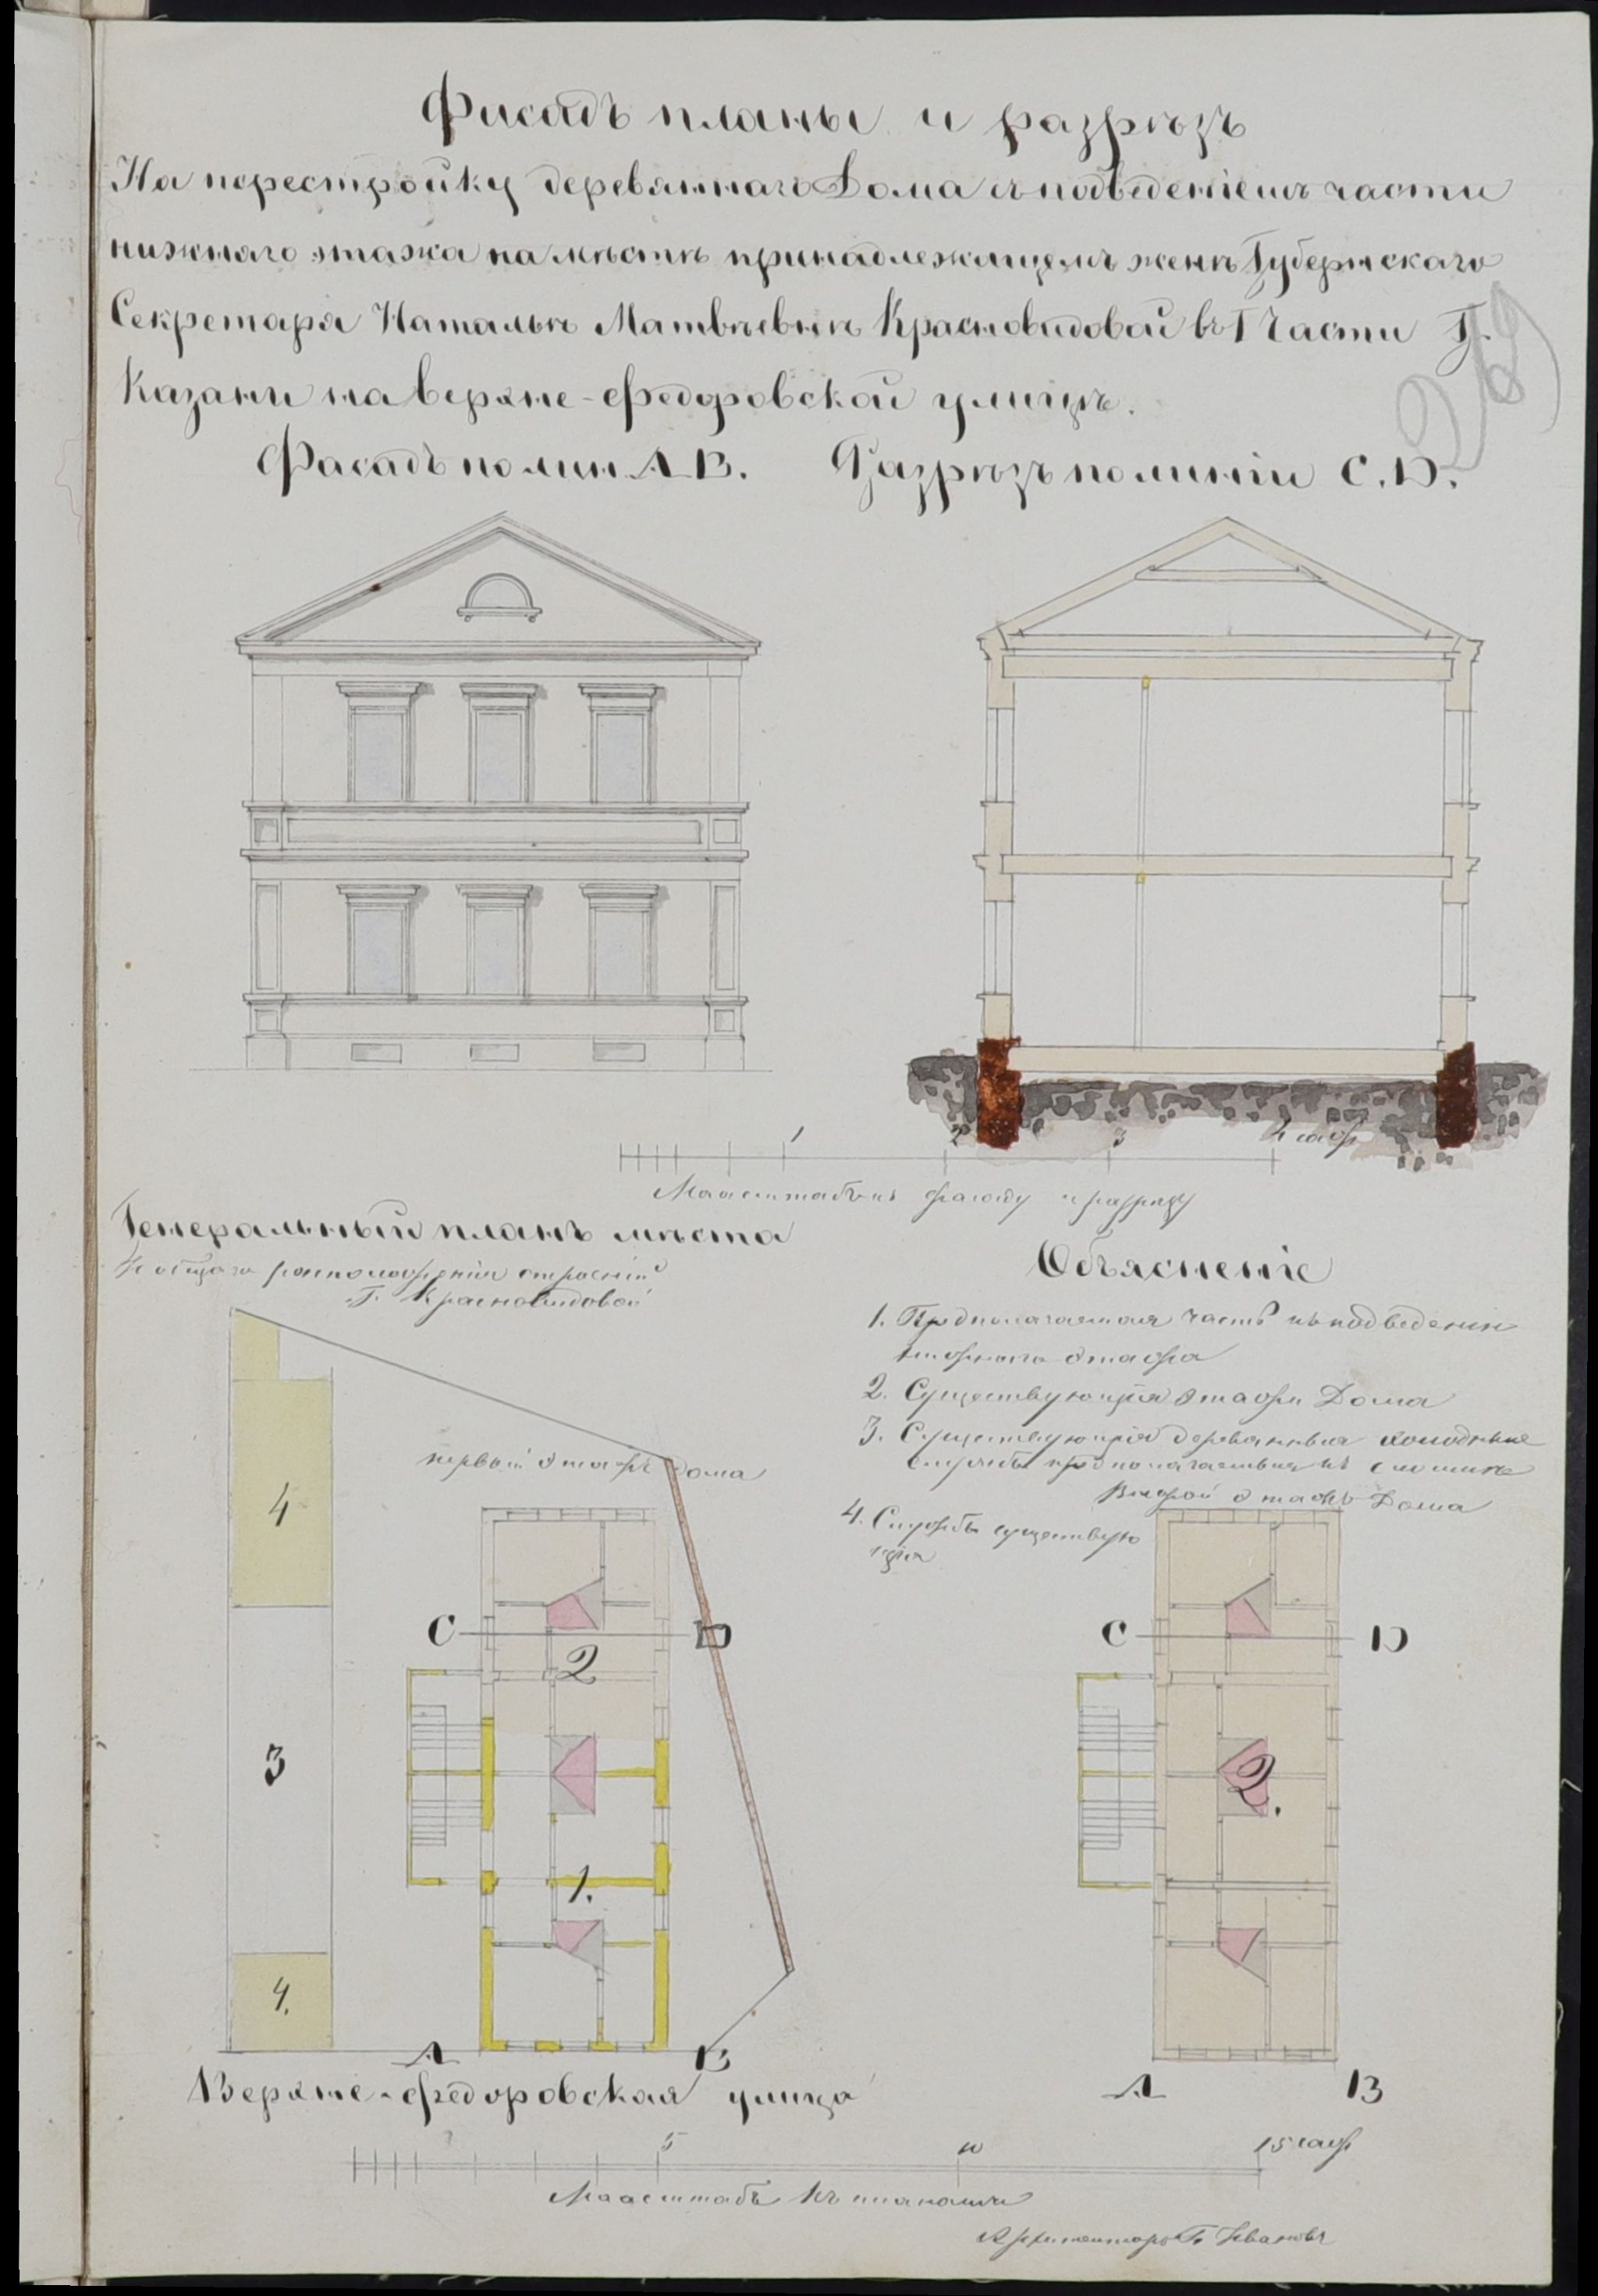 Фасадъ планы и разрѣзъ
На перестройку деревяннаго Дома съ подведеніемъ части
нижняго этажа на мѣстѣ принадлежащемъ женѣ Губернскаго
Секретаря Натальѣ Матвѣевнѣ Красновидовой въ 1 Части Г.
Казани на верхне-федоровской улицѣ.
269
Фасадъ по лин. А В.
Разрѣзъ по линіи С. D.
1 2 3 4 саж
Маасштабъ къ фасаду и разрѣзу
Генеральный планъ мѣста
и общаго расположенія строеній
Г. Красновидовой
Объясненіе
1. Предполагаемая часть къ подведенію
нижняго этажа
2. Существующія этажи Дома
3. Существующія деревянныя холодныя
службы предполагаемыя къ сломкѣ
4. Службы существую
щія
первый этажъ дома
Второй этажъ Дома
4
3
4.
С D
2
1.
А В
С D
2.
А В
Верхне-федоровская улица
5 10 15 саж
Маасштабъ къ планамъ
Архитекторъ П. Ивановъ